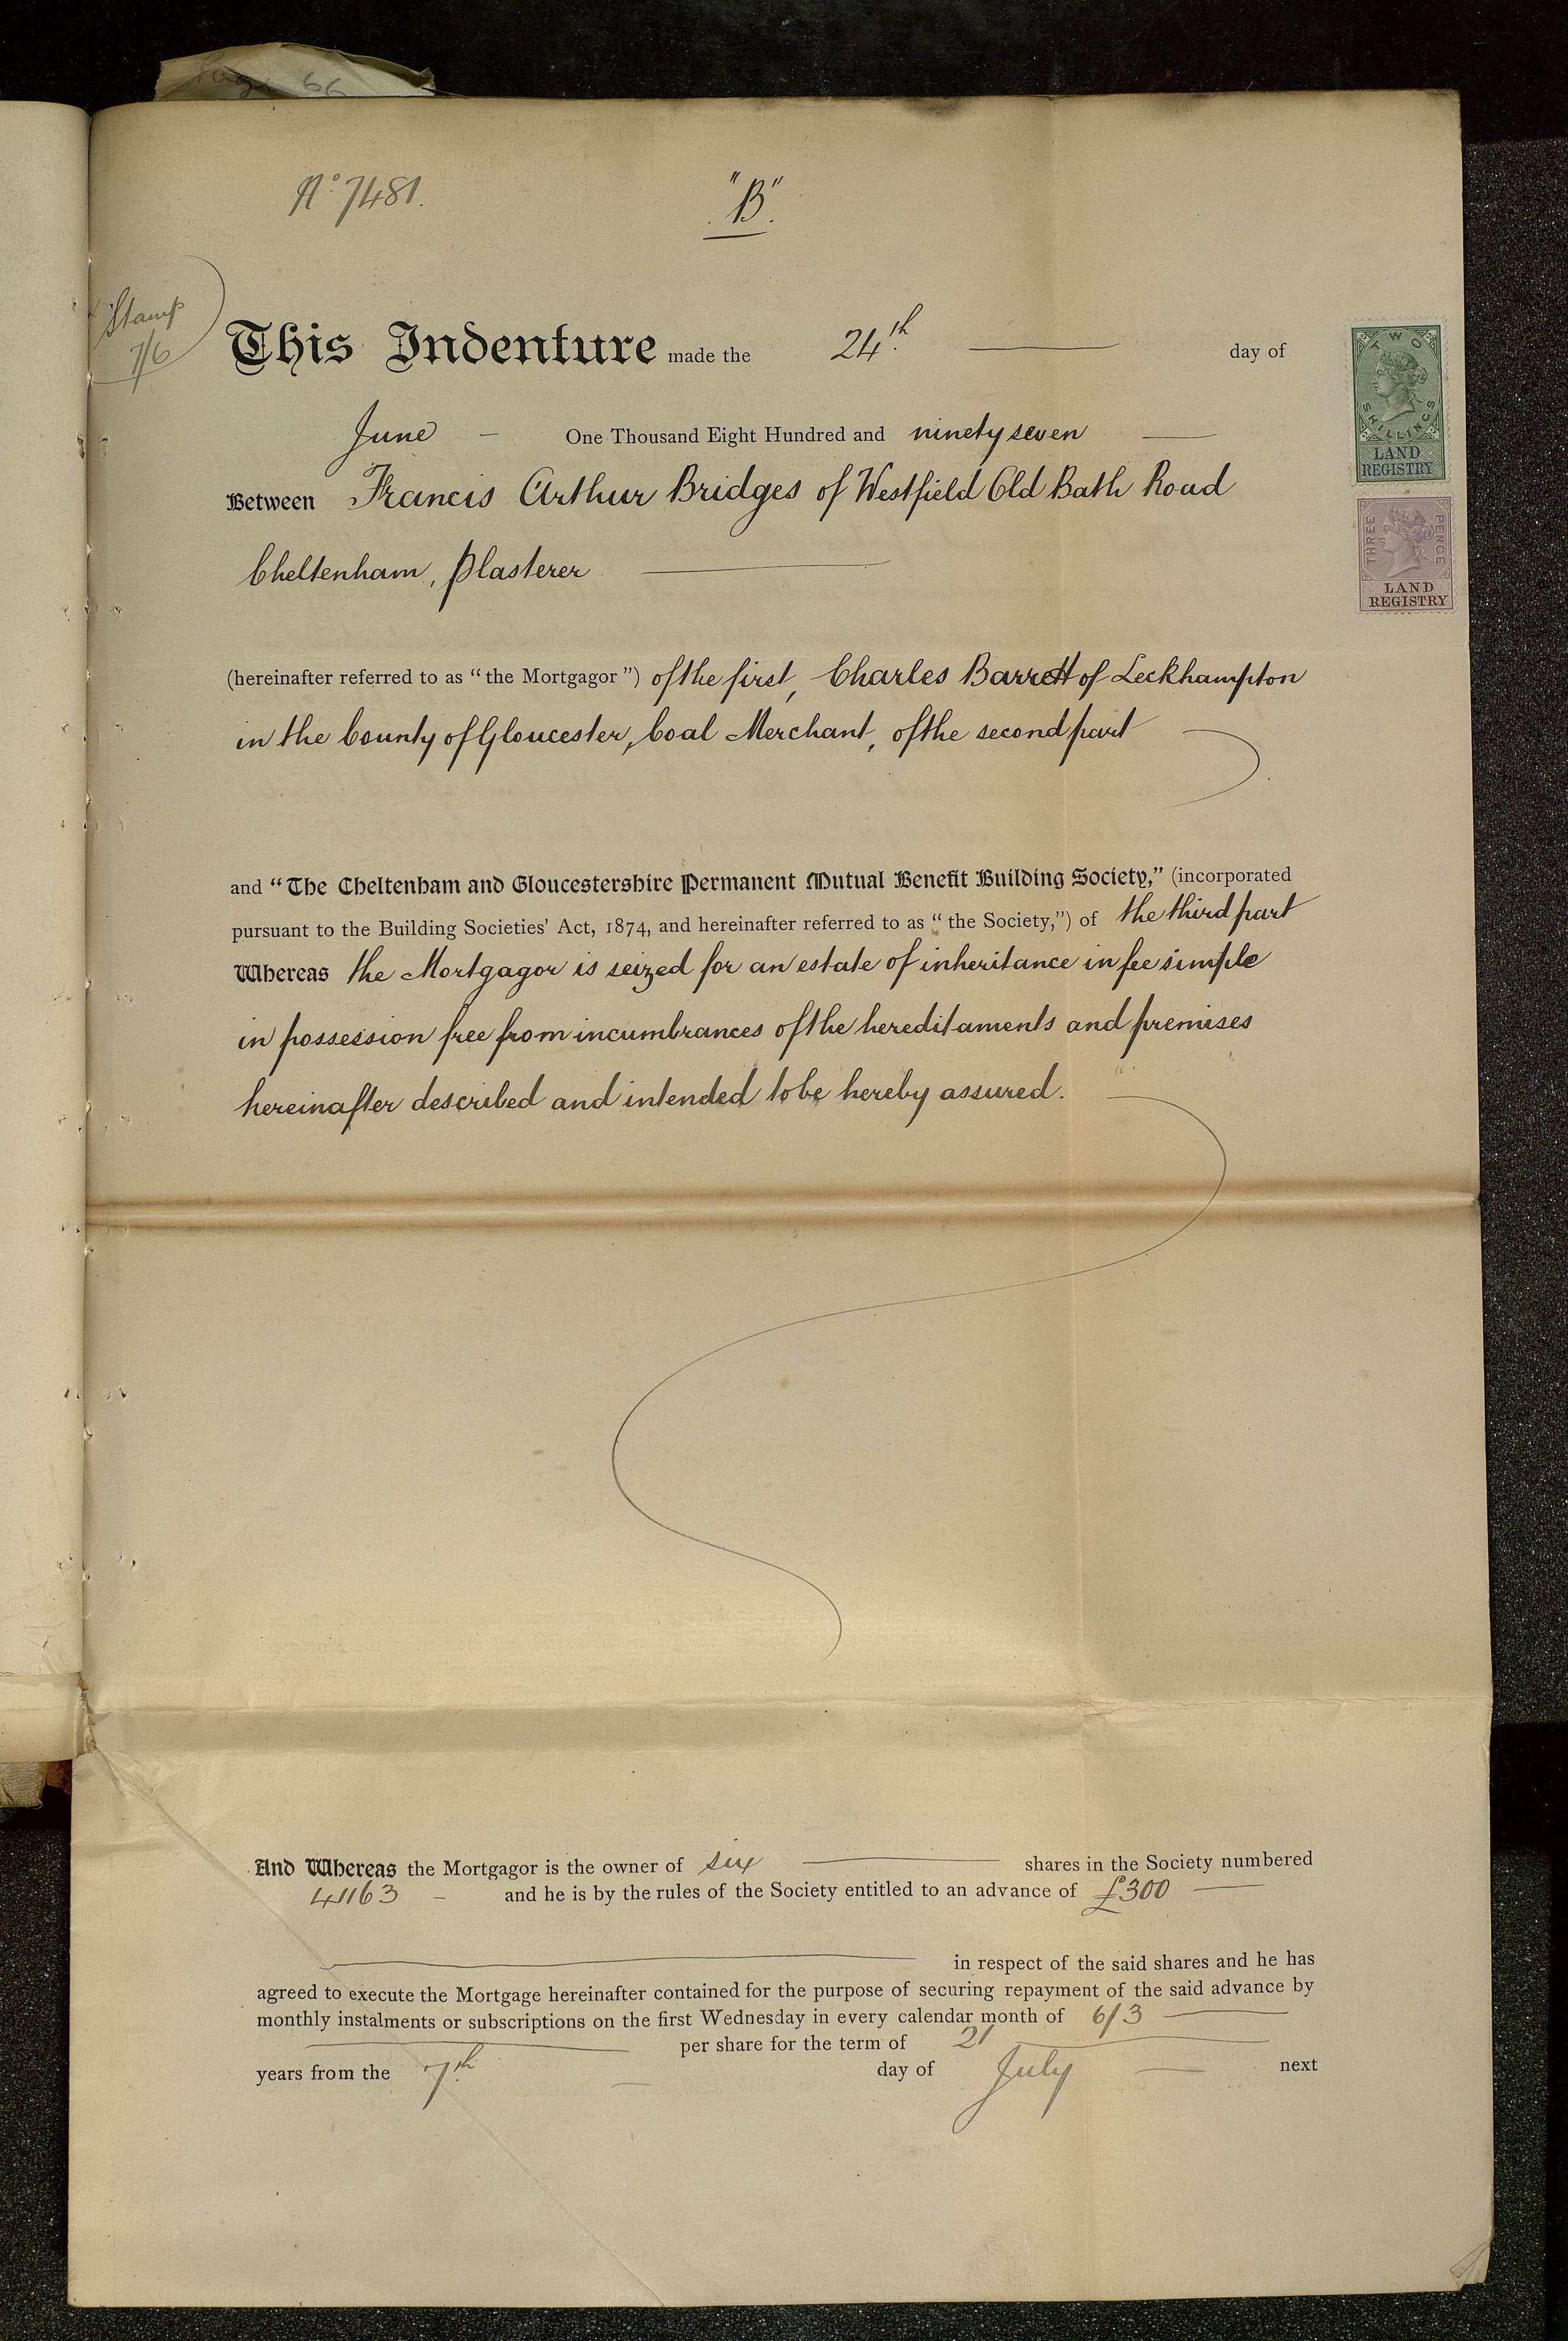 Page 66
No 7481.
"B".
Stamp
7/6
This Indenture made the 24th day of
June - One Thousand Eight Hundred and ninety seven
Between Francis Arthur Bridges of Westfield Old Bath Road
Cheltenham, Plasterer
(hereinafter referred to as "the Mortgagor") of the first, Charles Barrett of Leckhampton
in the County of Gloucester, Coal Merchant, of the second part
and "The Cheltenham and Gloucestershire Permanent Mutual Benefit Building Society," (incorporated
pursuant to the Building Societies' Act, 1874, and hereinafter referred to as "the Society,") of the third part
Whereas the Mortgagor is seized for an estate of inheritance in fee simple
in possession free from incumbrances of the hereditaments and premises
hereinafter described and intended to be hereby assured.
And Whereas the Mortgagor is the owner of six shares in the Society numbered
41163 - and he is by the rules of the Society entitled to an advance of £300
in respect of the said shares and he has
agreed to execute the Mortgage hereinafter contained for the purpose of securing repayment of the said advance by
monthly instalments or subscriptions on the first Wednesday in every calendar month of 6/3
per share for the term of 21
years from the 7th day of July next
TWO
SHILLINGS
LAND
REGISTRY
THREE
PENCE
LAND
REGISTRY